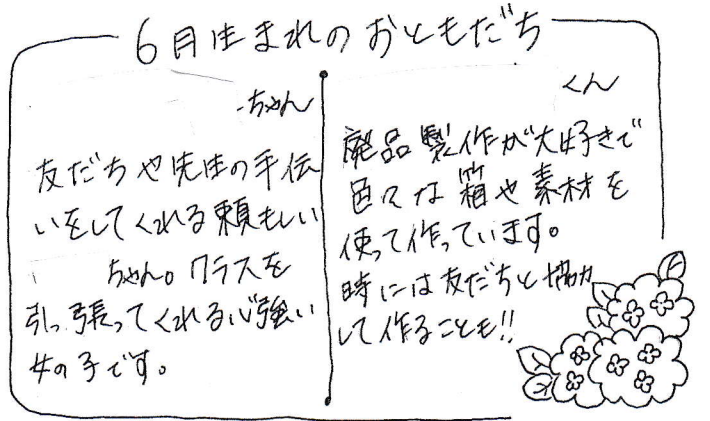 6月生まれのおともだち
ちゃん
友だちや先生の手伝
いをしてくれる頼もしい
ちゃん。クラスを
引っ張ってくれる心強い
女の子です。
くん
廃品製作が大好きで
色々な箱や素材を
使って作っています。
時には友だちと協力
して作ることも!!